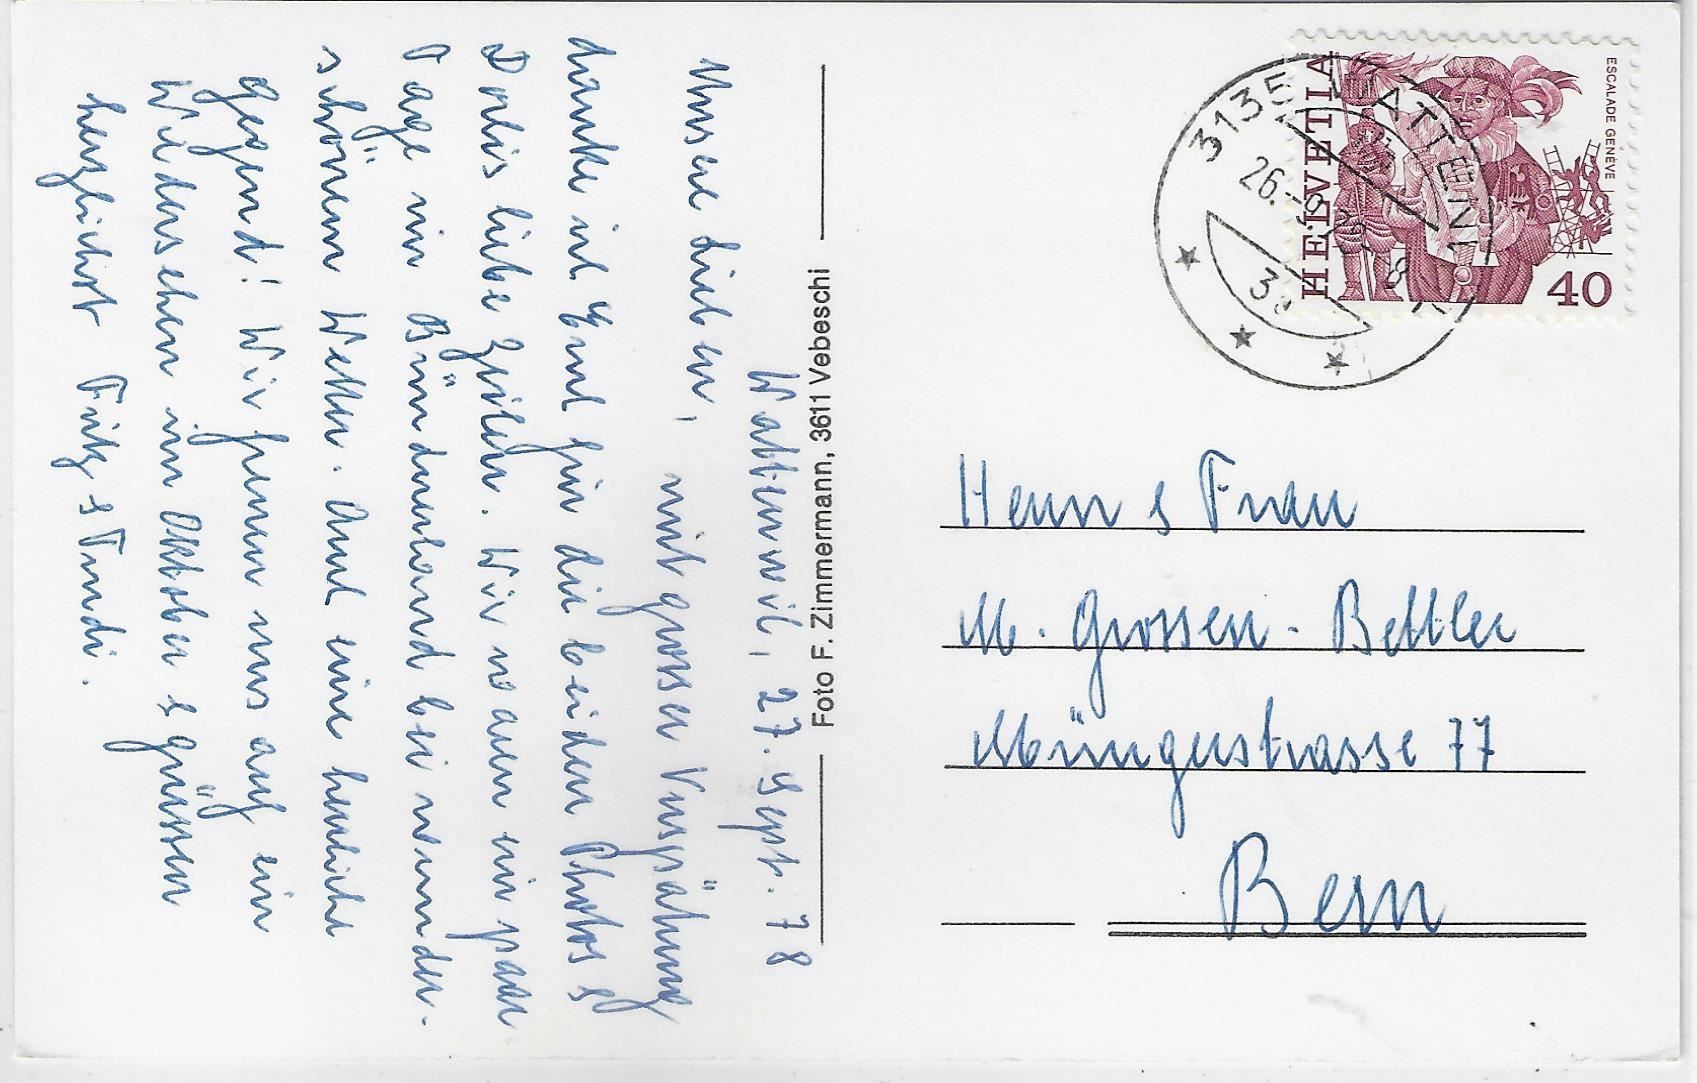 Wattenwil, 27. Sept. 78
Unsere Lieben,
mit grosser Verspätung
danke ich Euch für die beiden Photos &
Doris liebe Zeilen. Wir waren ein paar
Tage im Bündnerland bei wunder-
schönem Wetter. Auch eine herrliche
Gegend! Wir freuen uns auf ein
Wiedersehen im Oktober & grüssen
herzlichst Fritz & Trudi.
Foto F. Zimmermann, 3611 Vebeschi
ESCALADE GENÈVE
HELVETIA
40
3135 WATTENWIL
26.-9.78-18
3a
Herrn & Frau
M. Grossen-Bettler
Müngerstrasse 77
Bern